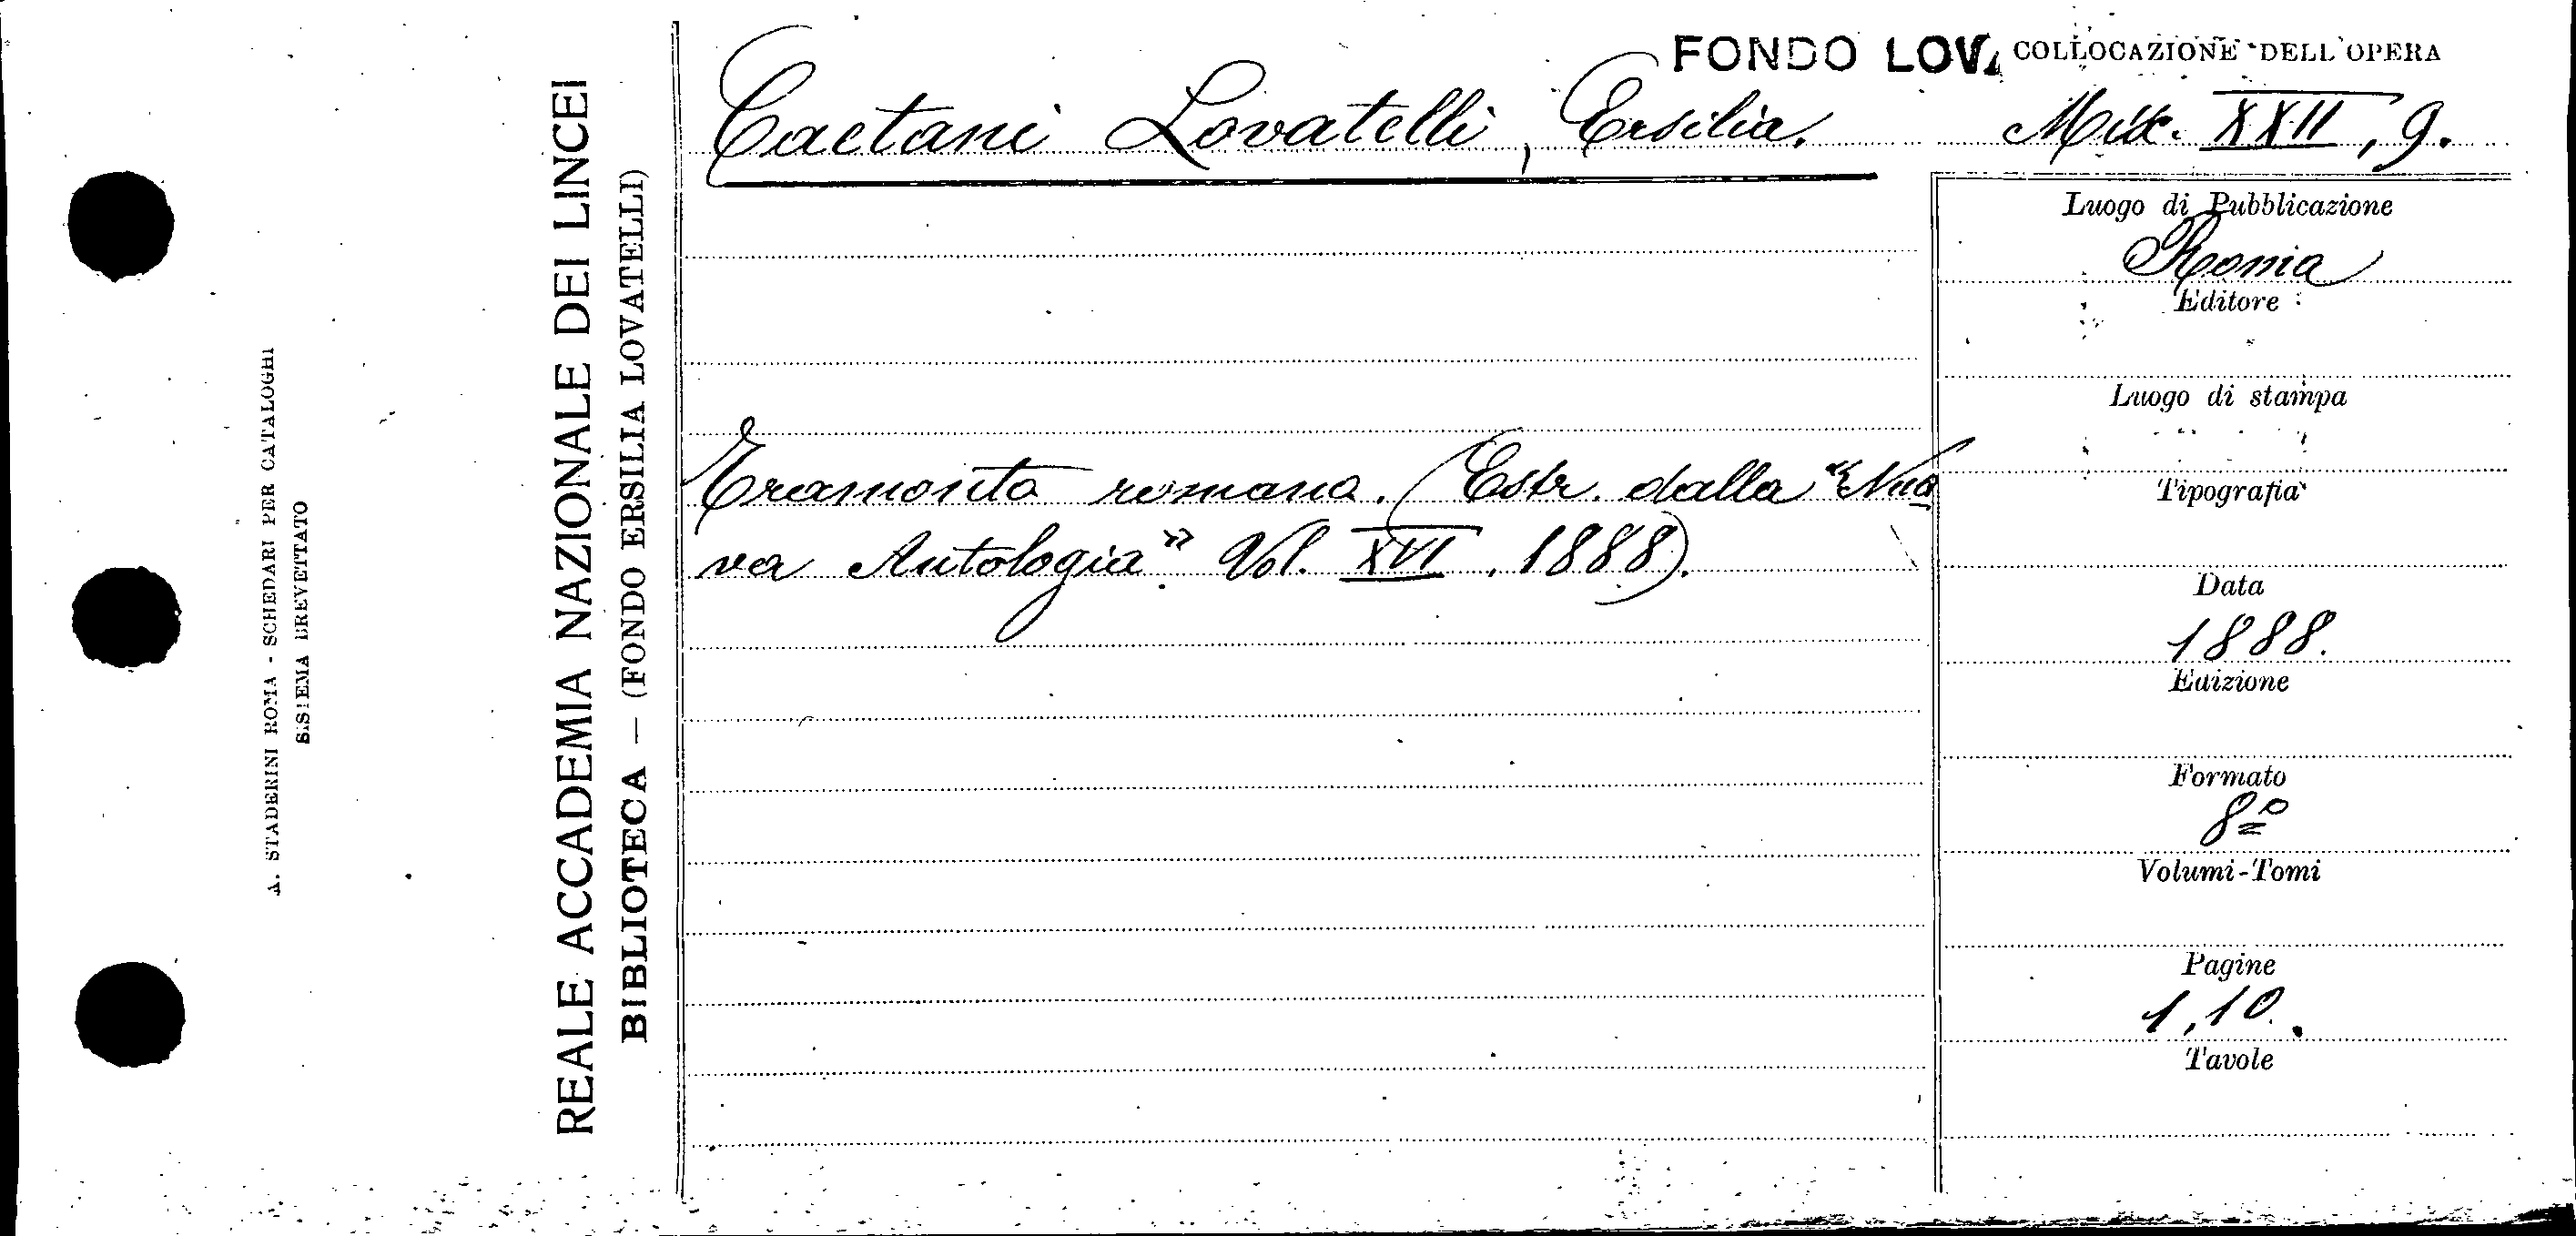 FONDO LOV. COLLOCAZIONE DELL'OPERA
Caetani Lovatelli, Ersilia. Misc. XXII, 9.
Luogo di Pubblicazione
Roma
Editore
Luogo di stampa
Tramonto romano. (Estr. dalla "Nuo
va Antologia". Vol. XVI, 1888).
Tipografia
Data
1888.
Edizione
Formato
8º
Volumi-Tomi
Pagine
1,10.
Tavole
REALE ACCADEMIA NAZIONALE DEI LINCEI
BIBLIOTECA — (FONDO ERSILIA LOVATELLI)
A. STADERINI ROMA - SCHEDARI PER CATALOGHI
SISTEMA BREVETTATO